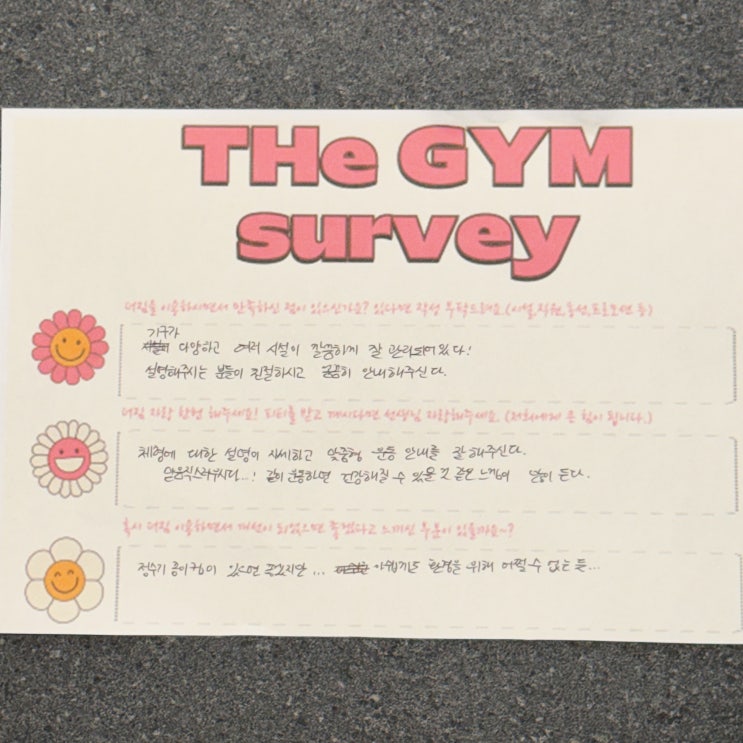 THe GYM
survey
더짐을 이용하시면서 만족하신 점이 있으신가요? 있다면 작성 부탁드려요.(시설,직원,동선,프로모션 등)
기구가
다양하고 여러 시설이 깔끔하게 잘 관리되어있다!
설명해주시는 분들이 친절하시고 꼼꼼히 안내해주신다.
더짐 자랑 한번 해주세요! 피티를 받고 계시다면 선생님 자랑해주세요. (저희에게 큰 힘이 됩니다.)
체형에 대한 설명이 자세하고 맞춤형 운동 안내를 잘 해주신다.
믿음직스러우시다...! 같이 운동하면 건강해질 수 있을 것 같은 느낌이 많이 든다.
혹시 더짐 이용하면서 개선이 되었으면 좋겠다고 느끼신 부분이 있을까요~?
정수기 종이컵이 있으면 좋겠지만... 아쉽지만 환경을 위해 어쩔 수 없는 듯...